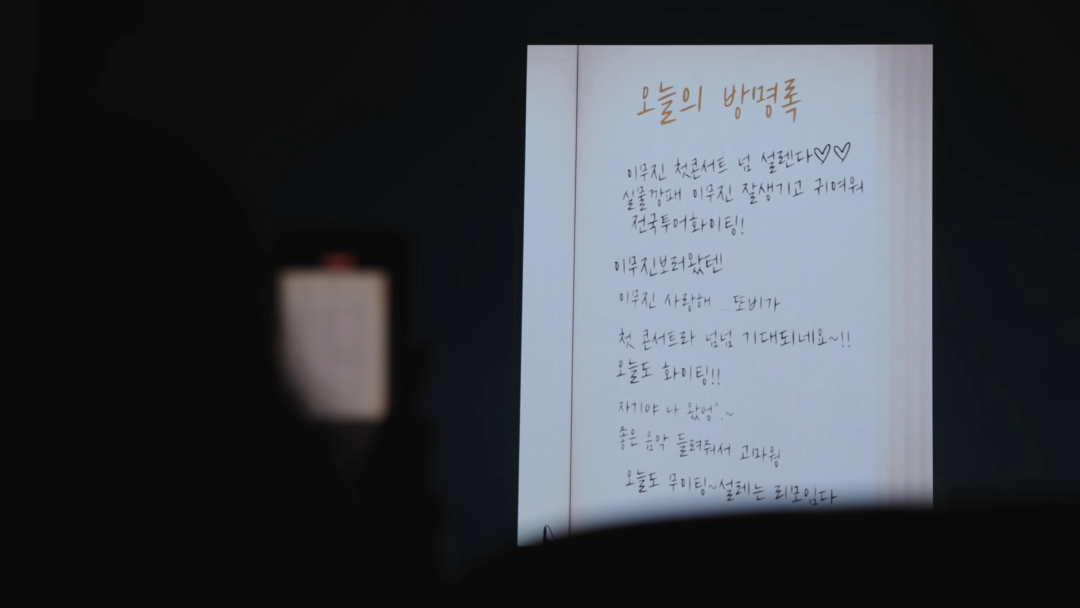 오늘의 방명록
이무진 첫콘서트 넘 설렌다♡♡
실물깡패 이무진 잘생기고 귀여워
전국투어화이팅!
이무진보러왔텐!
이무진 사랑해 ... 또비가
첫 콘서트라 넘넘 기대되네요~!!
오늘도 화이팅!!
자기야 나 왔엉~
좋은 음악 들려줘서 고마웡
오늘도 무이팅~설레는 리모입다